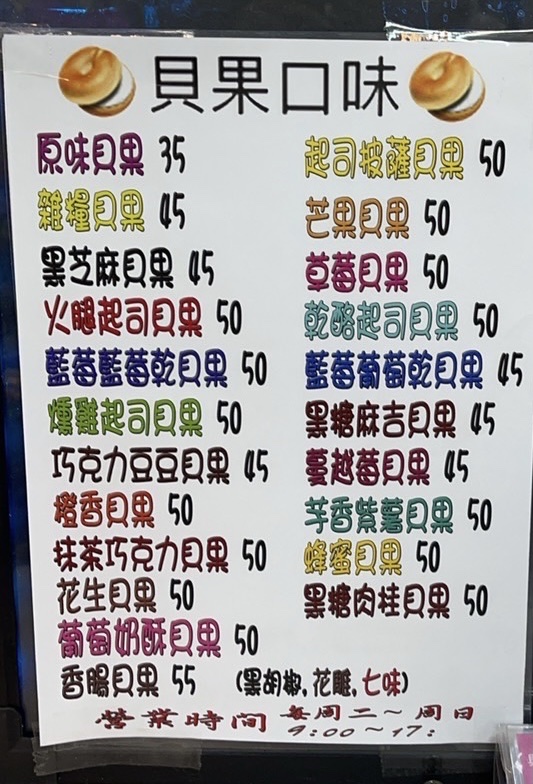 貝果口味
原味貝果 35
雜糧貝果 45
黑芝麻貝果 45
火腿起司貝果 50
藍莓藍莓乾貝果 50
燻雞起司貝果 50
巧克力豆豆貝果 45
橙香貝果 50
抹茶巧克力貝果 50
花生貝果 50
葡萄奶酥貝果 50
香腸貝果 55 (黑胡椒,花雕,七味)
起司披薩貝果 50
芒果貝果 50
草莓貝果 50
乾酪起司貝果 50
藍莓葡萄乾貝果 45
黑糖麻吉貝果 45
蔓越莓貝果 45
芋香紫薯貝果 50
蜂蜜貝果 50
黑糖肉桂貝果 50
營業時間 每周二～周日
9:00～17: